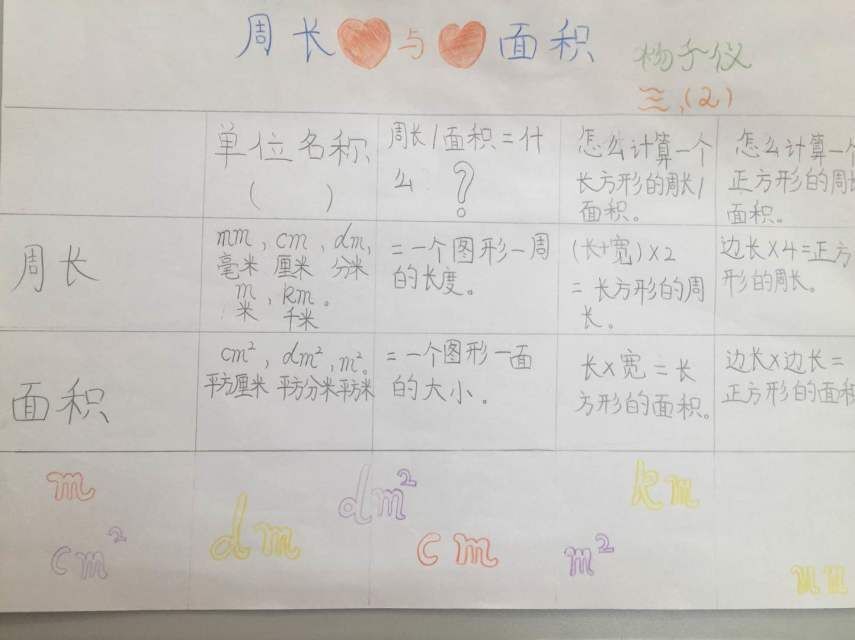 周长与面积
杨子仪
三、(2)
单位名称
( )
周长/面积=什
么?
怎么计算一个
长方形的周长/
面积。
怎么计算一个
正方形的周长
面积。
周长
mm, cm, dm,
毫米 厘米 分米
m, km。
米 千米
=一个图形一周
的长度。
(长+宽)×2
=长方形的周
长。
边长×4=正方
形的周长。
面积
cm², dm², m²。
平方厘米 平方分米 平方米
=一个图形一面
的大小。
长×宽=长
方形的面积。
边长×边长=
正方形的面积
m
cm²
dm
dm²
cm
km
m²
mm